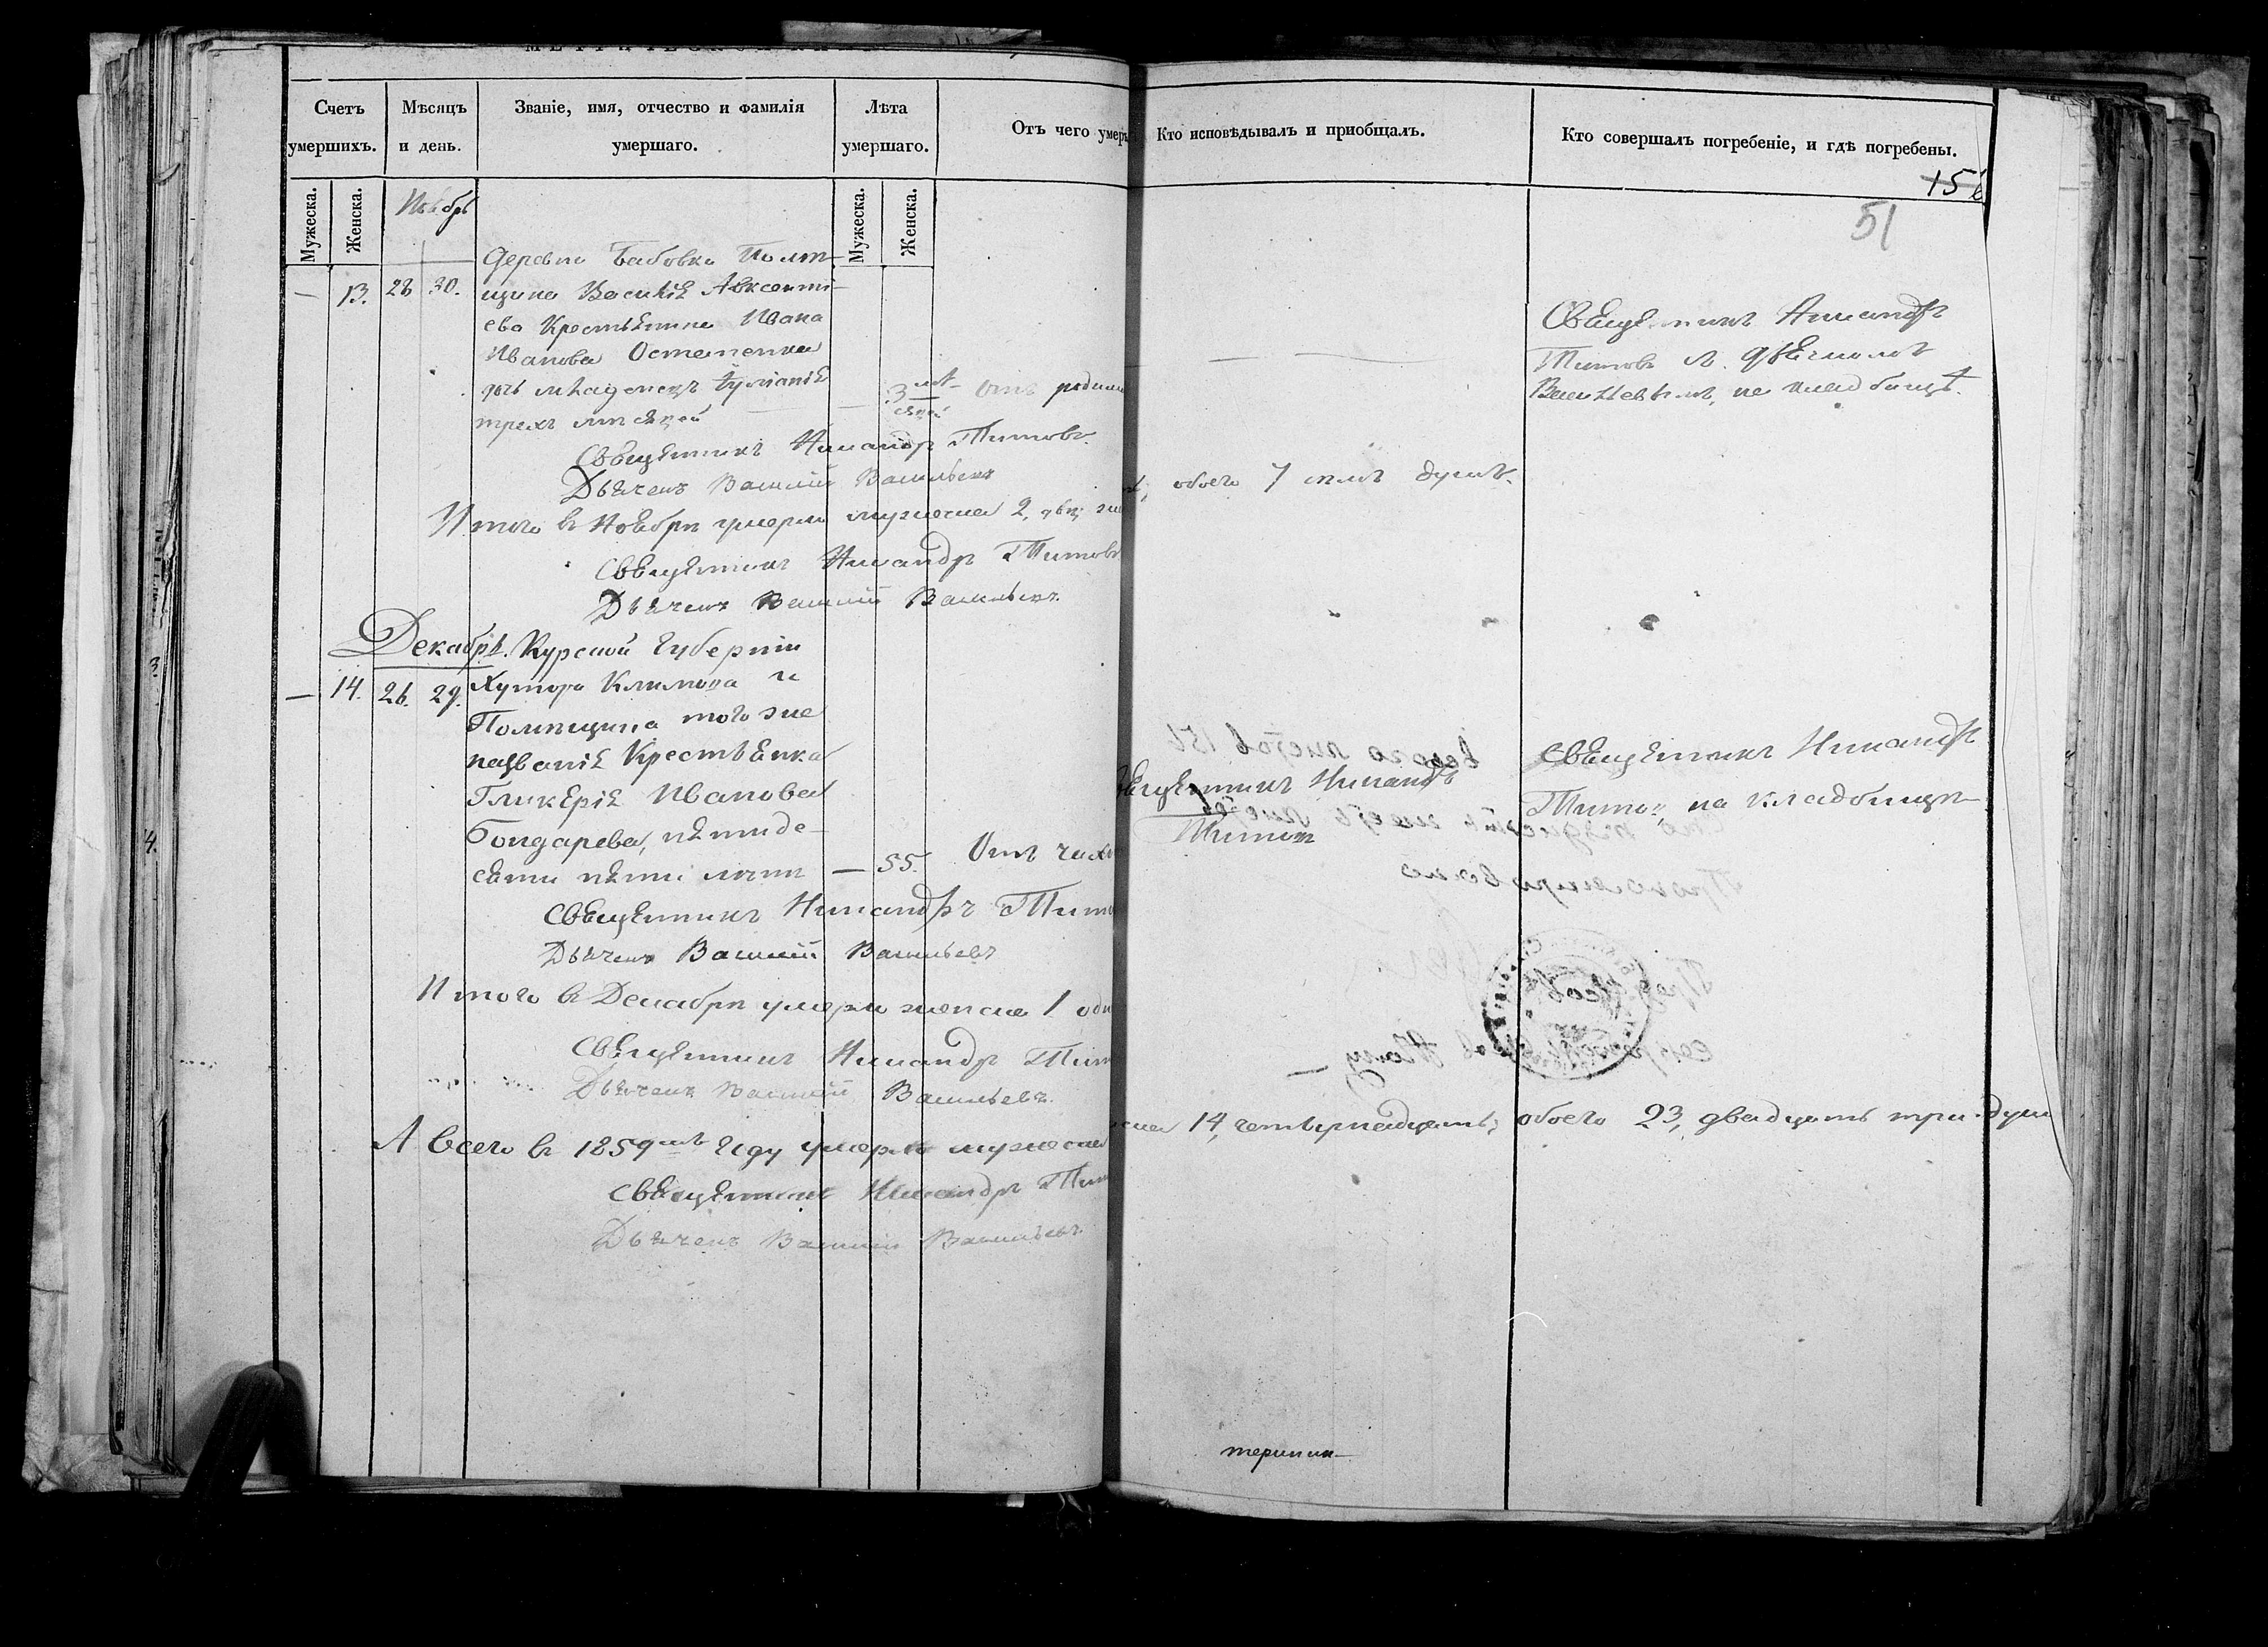 Счетъ умершихъ.
Мѣсяцъ и день.
Званіе, имя, отчество и фамилія умершаго.
Лѣта умершаго.
Отъ чего умеръ
Кто исповѣдывалъ и приобщалъ.
Кто совершалъ погребеніе, и гдѣ погребены.
Мужеска.
Женска.
Мужеска.
Женска.
156
51
Ноябрь
Деревни Бабовки Помѣ-
— 13. 28 30. щика Василія Авксенті-
ева Крестьянина Ивана
Иванова Остапенка
дочь младенецъ
трехъ мѣсяцей — 3 мѣ-сяцей Отъ родим
Священникъ Никандръ
Титовъ съ дьячкомъ
Васильевымъ, на кладбищѣ.
Священникъ Никандръ Титовъ.
Дьячекъ Василій Васильевъ
Итого въ Ноябрѣ умерло мужеска 2, два;
обоего 7 семь душъ.
Священникъ Никандръ Титовъ
Дьячекъ Василій Васильевъ.
Декабрь. Курской Губерніи
— 14. 26. 29. Хутора Климова и
Помѣщика того же
названія Крестьянка
Гликерія Иванова
Бондарева, пятиде-
сяти пяти лѣтъ — 55. Отъ чах
Священникъ Никандръ
Титовъ
Священникъ Никандръ
Титовъ, на кладбищѣ
Священникъ Никандръ Тито
Дьячекъ Василій Васильевъ
Итого въ Декабрѣ умерло женска 1 од
Священникъ Никандръ Тит
Дьячекъ Василій Васильевъ.
А всего въ 1859мъ Году умерло мужеска
14, четырнадцать; обоего 23, двадцать три душ
Священникъ Никандръ Тит
Дьячекъ Василій Васильевъ.
3.
4.